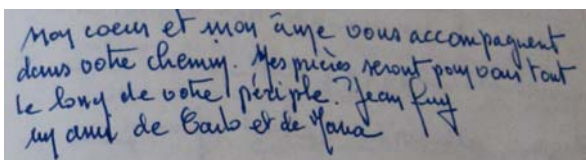 Mon coeur et mon âme vous accompagnent
dans votre chemin. Mes prières seront pour vous tout
le long de votre périple. Jean Guy
un ami de Carlo et de Maria